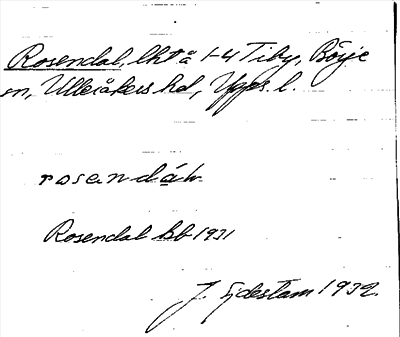 Rosendal, lht å 1-4 Tiby, Börje
sn, Ulleråkers hd, Upps. l.
rosandáɩ.
Rosendal bb 1931
J. Ejdestam 1932.